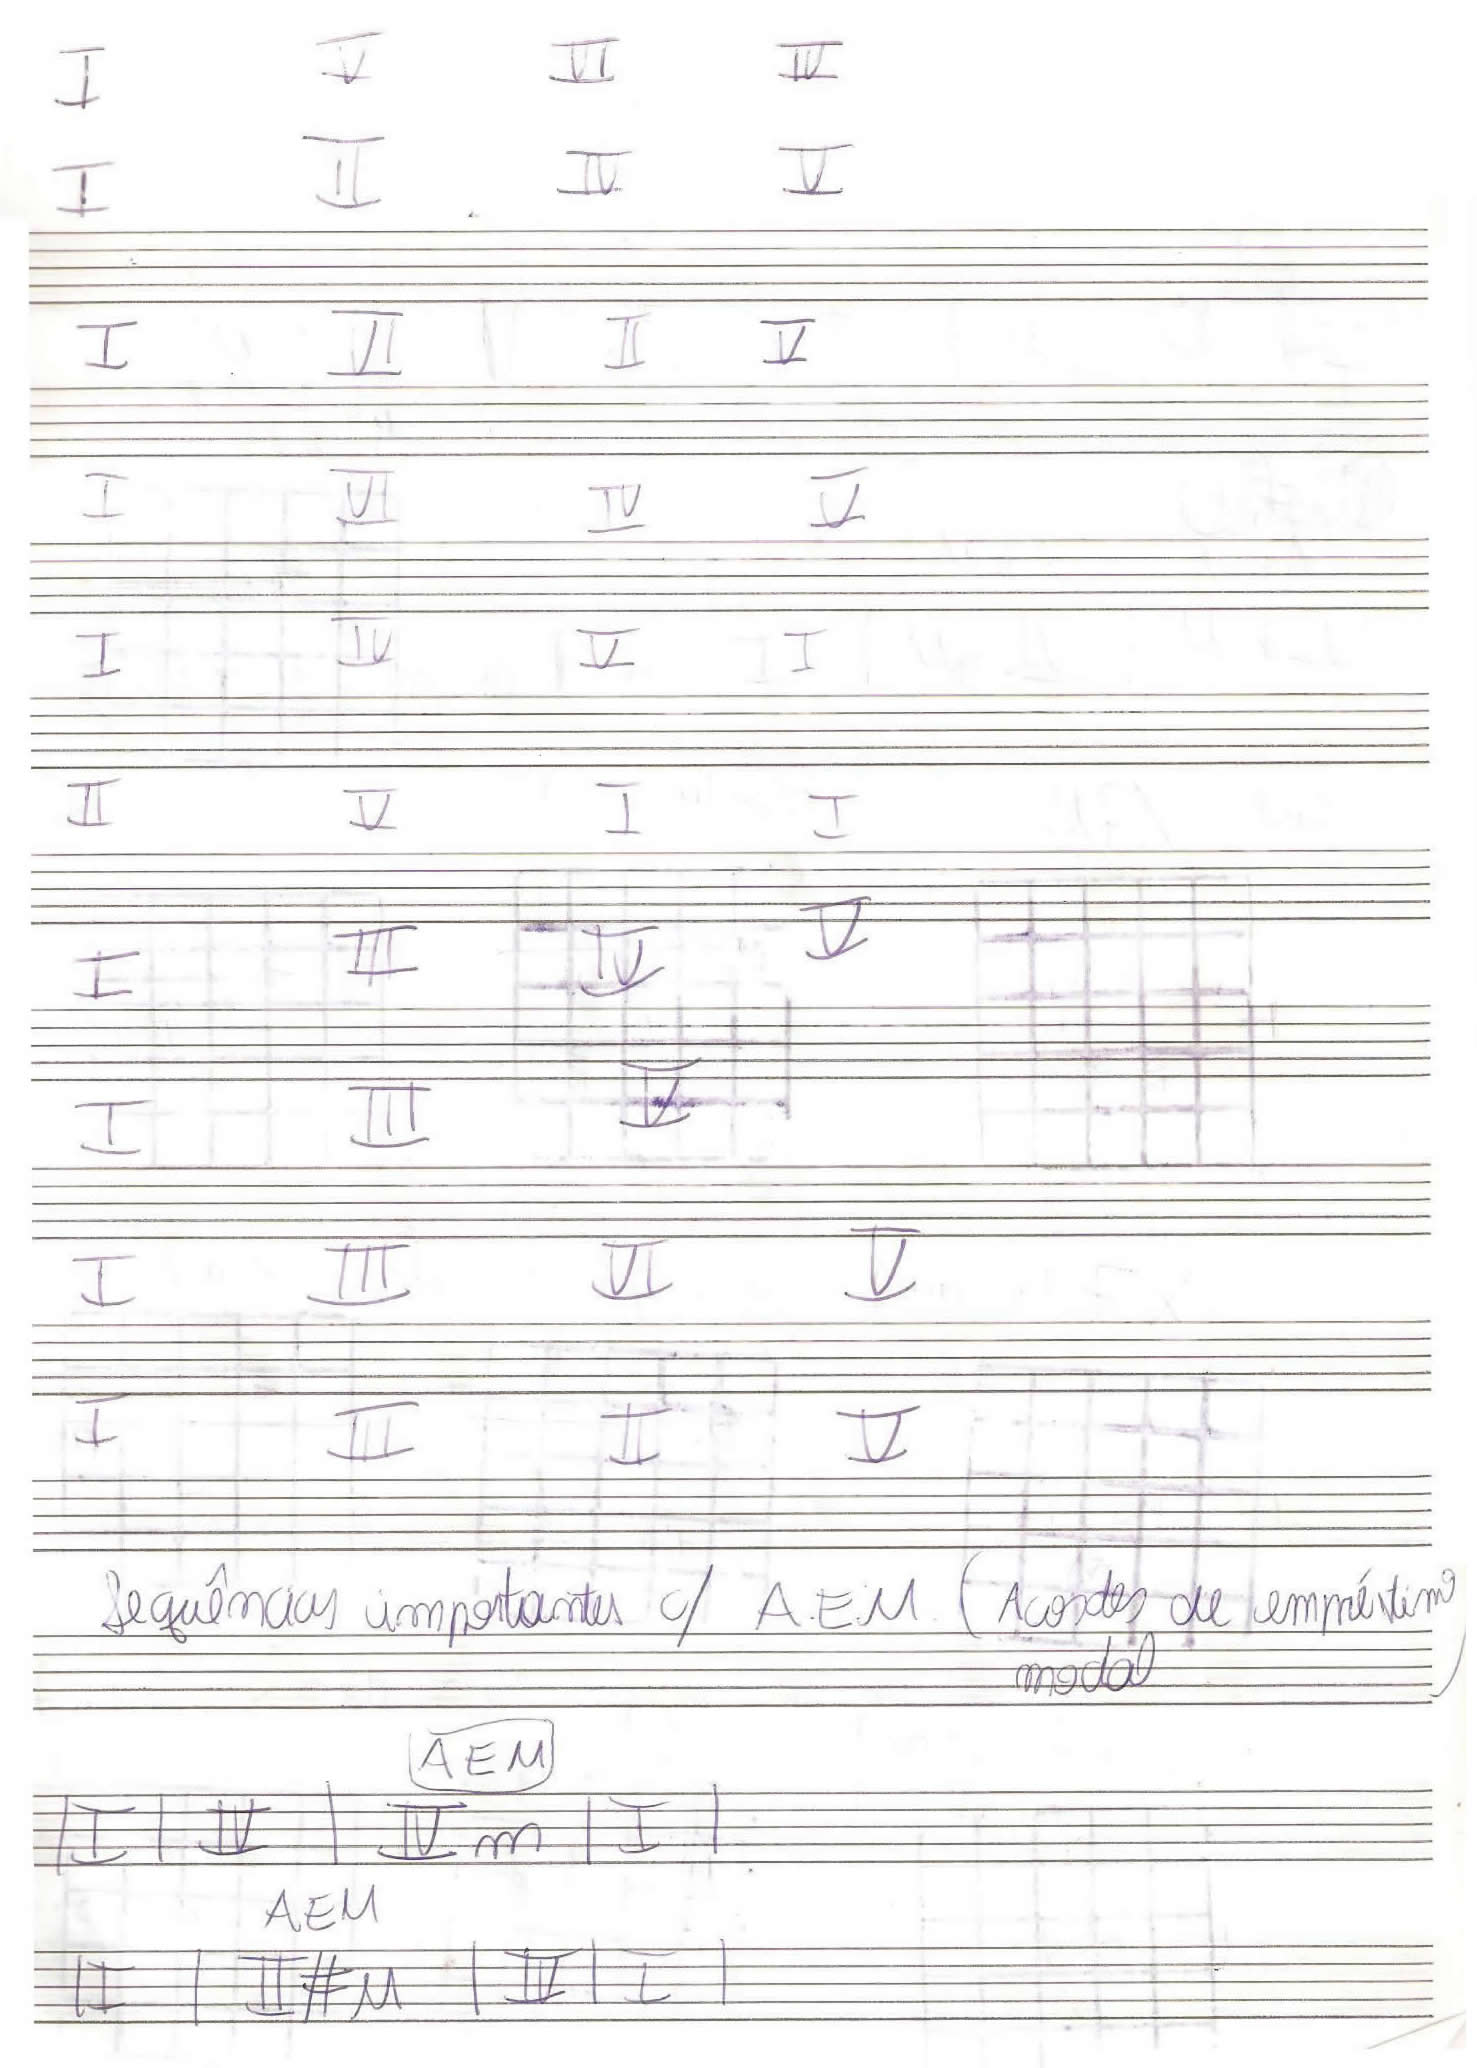 I V VI IV
I II IV V
I VI II V
I VI IV V
I IV V I
II V I I
I III IV V
I III V
I III VI V
I III II V
Sequências importantes c/ A.E.M. (Acordes de empréstimo
modal)
AEM
| I | IV | IVm | I |
AEM
| I | II#M | IV | I |